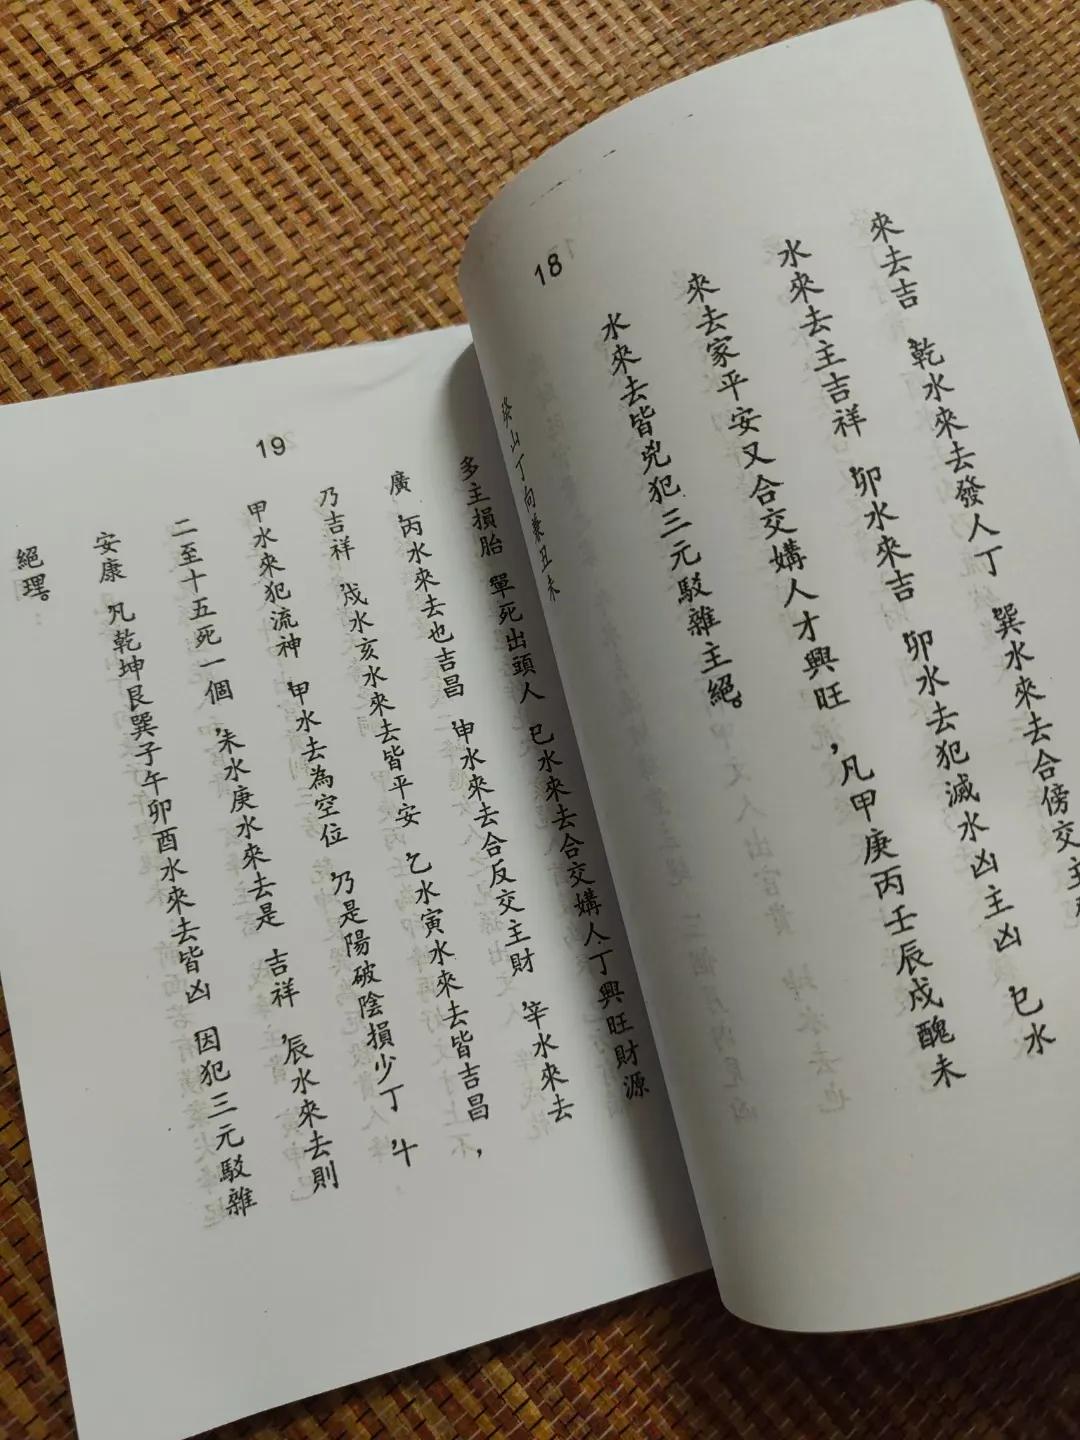 18
來去吉 乾水來去發人丁 巽水來去合傍交主
水來去主吉祥 卯水來吉 卯水去犯滅水凶主凶 巳水
來去家平安又合交媾人才興旺，凡甲庚丙壬辰戍醜未
水來去皆兇犯三元駁雜主絕。
癸山丁向兼丑未
19
多主損胎 單死出頭人 巳水來去合交媾人丁興旺財源
廣 丙水來去也吉昌 申水來去合反交主財 辛水來去
乃吉祥 戌水亥水來去皆平安 乙水寅水來去皆吉昌，
甲水來犯流神 甲水去為空位 乃是陽破陰損少丁 十
二至十五死一個 未水庚水來去是 吉祥 辰水來去則
安康 凡乾坤艮巽子午卯酉水來去皆凶 因犯三元駁雜
絕理。